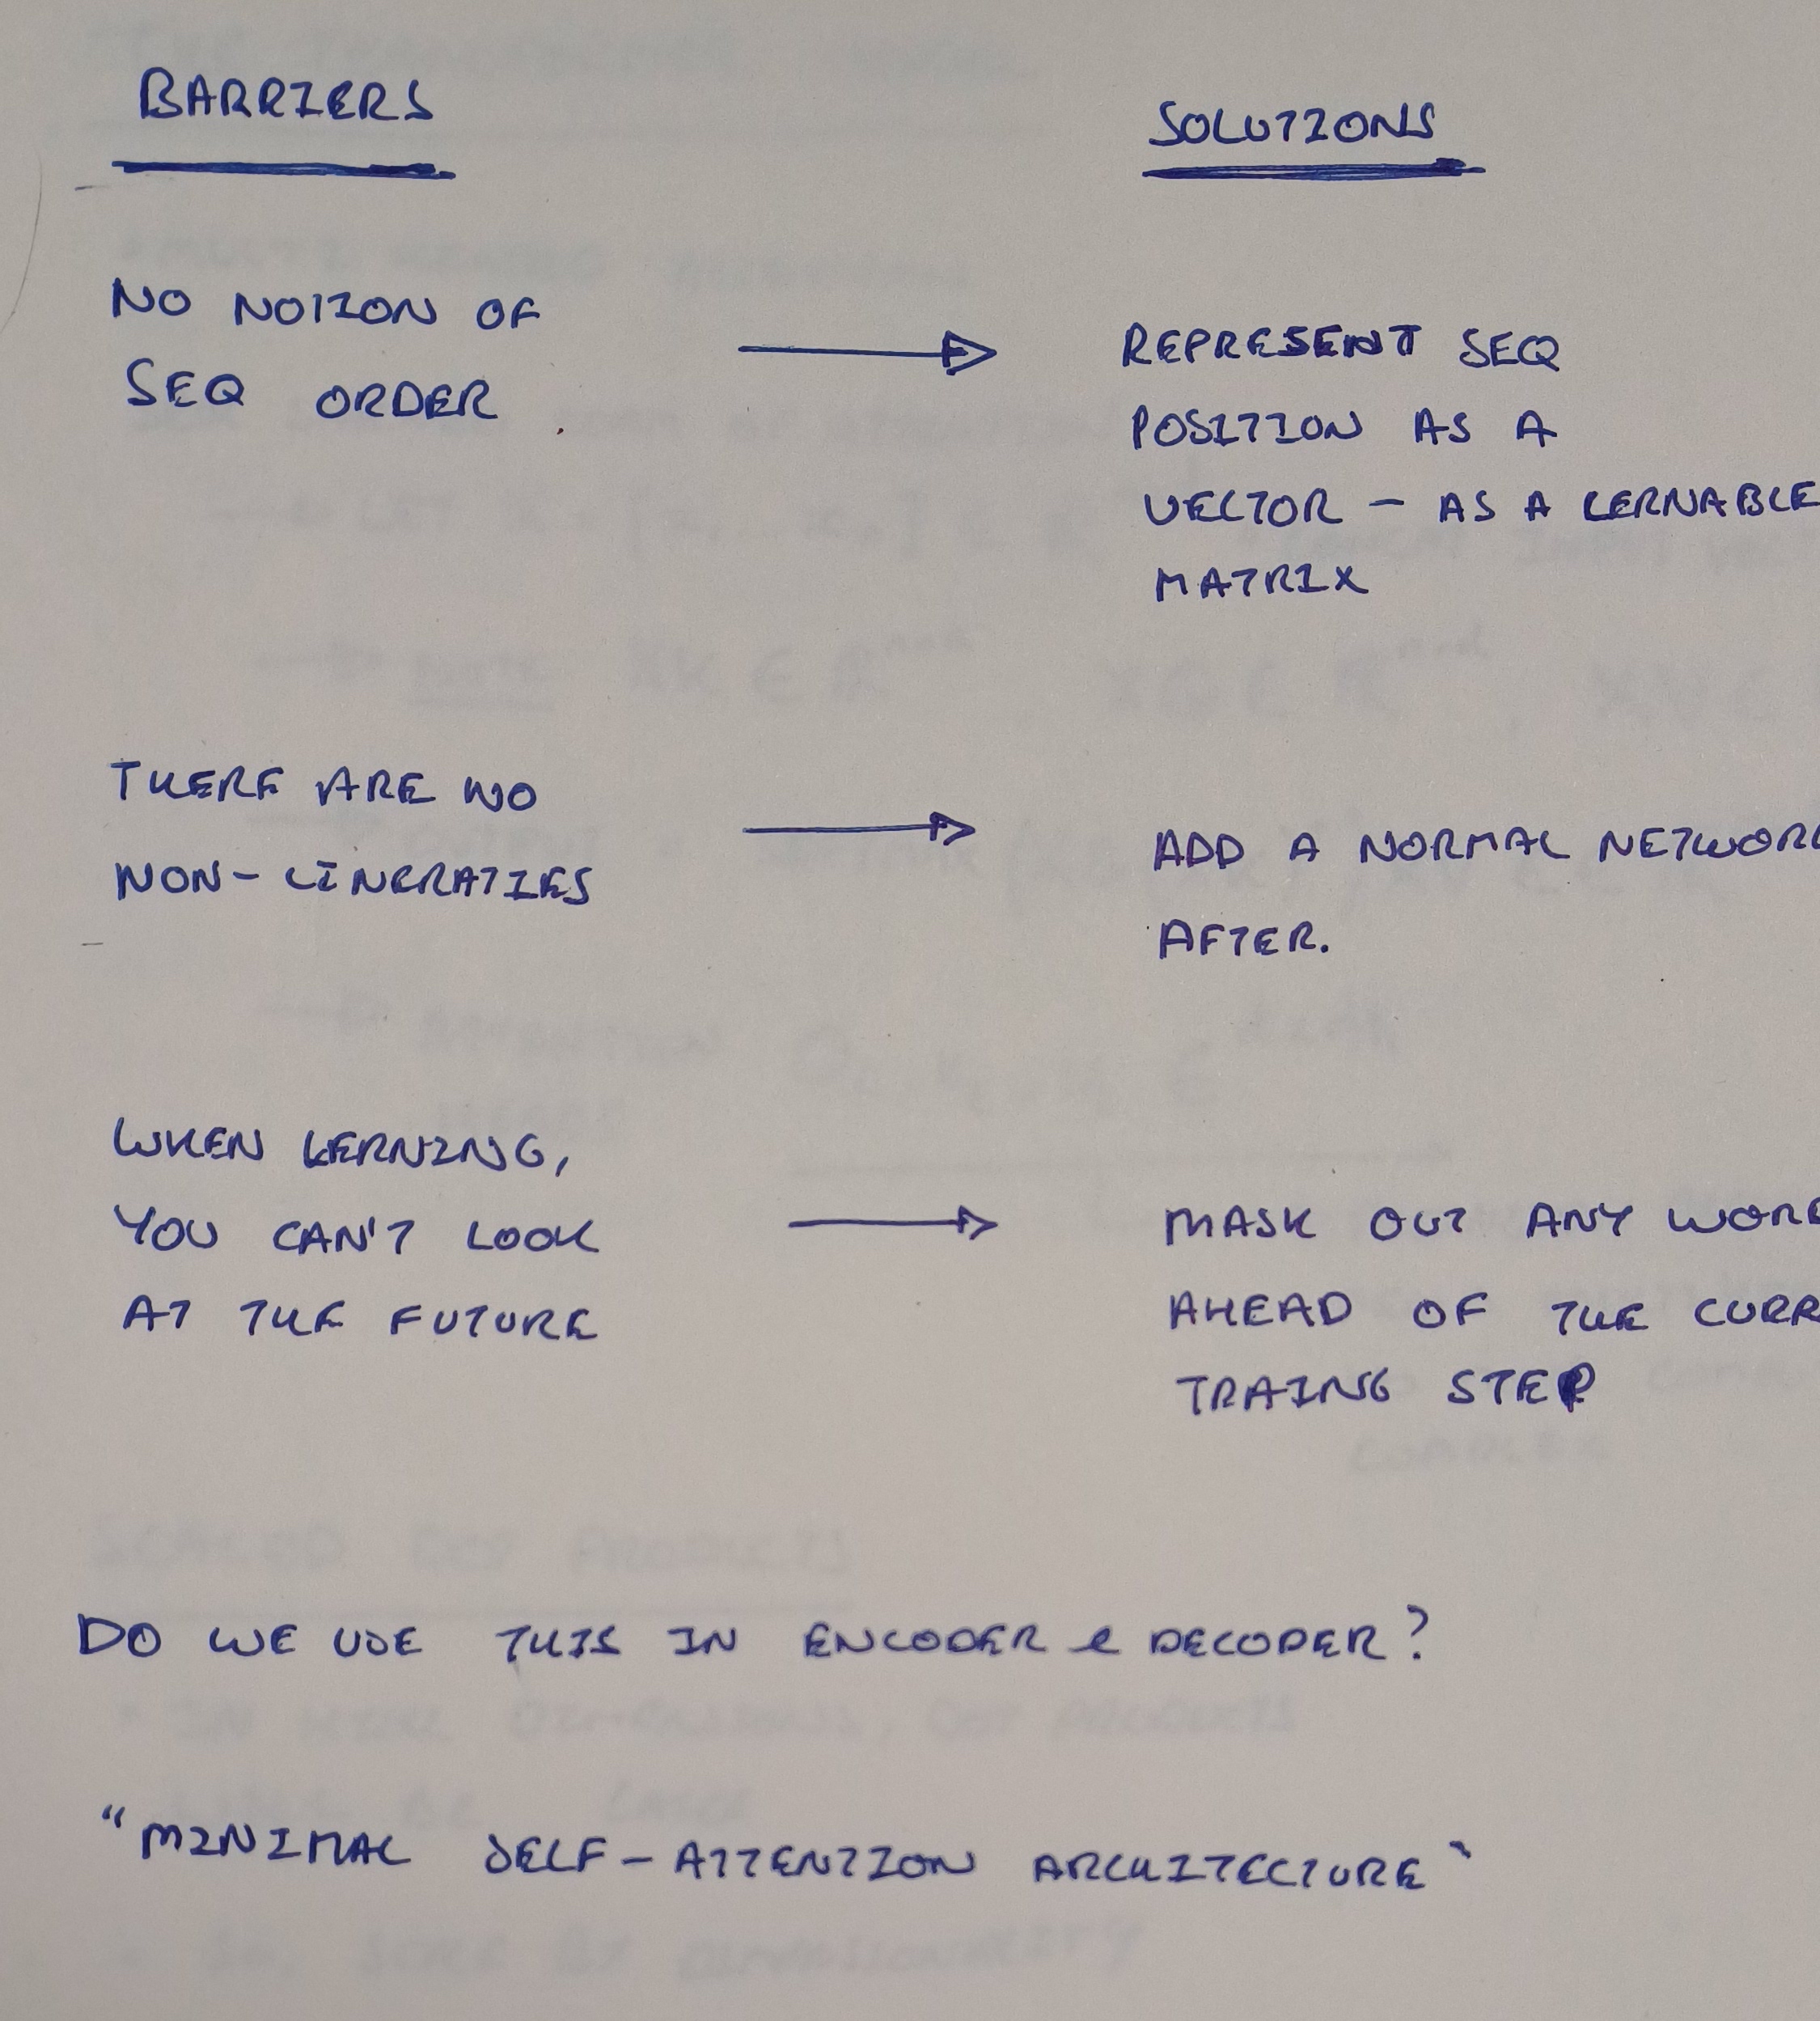 BARRIERS
SOLUTIONS
NO NOTION OF
SEQ ORDER
REPRESENT SEQ
POSITION AS A
VECTOR - AS A LERNABLE
MATRIX
THERE ARE NO
NON-LINERATIES
ADD A NORMAL NETWORK
AFTER.
WHEN LERNING,
YOU CAN'T LOOK
AT THE FUTURE
MASK OUT ANY WORD
AHEAD OF THE CURR
TRAING STEP
DO WE USE THIS IN ENCODER & DECODER?
"MINIMAL SELF-ATTENTION ARCHITECTURE"